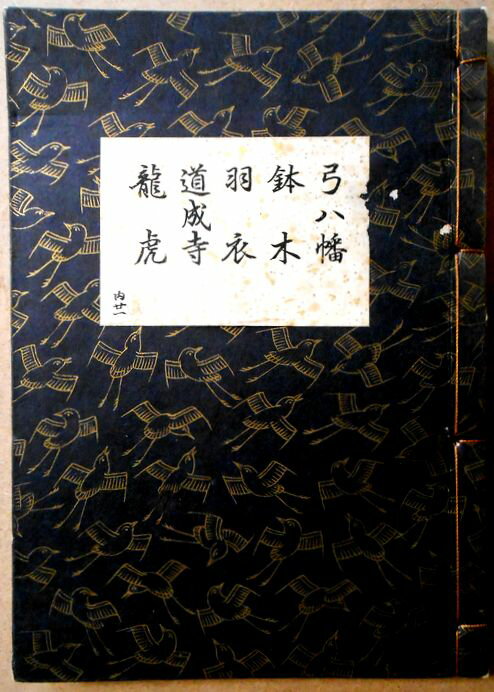 弓八幡
鉢木
羽衣
道成寺
龍虎
内廿一